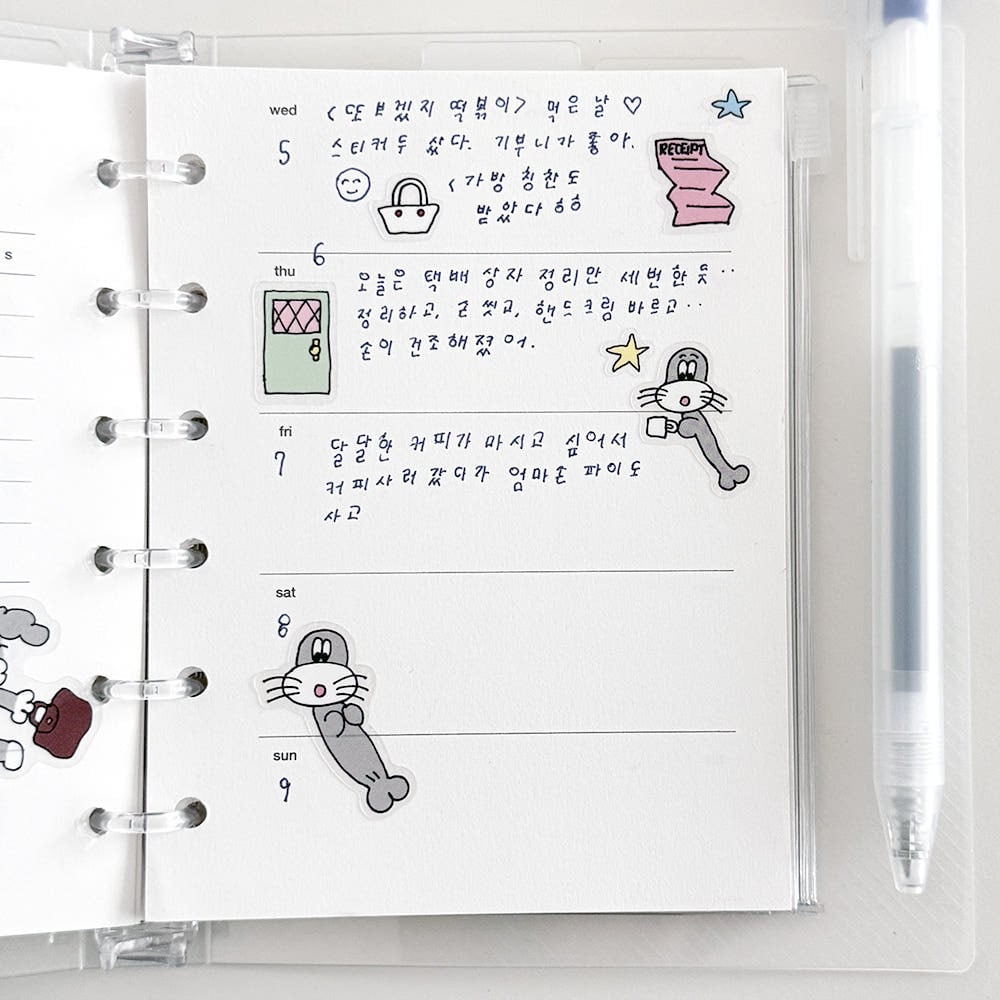 s
wed
<또보겠지 떡볶이> 먹은 날 ♡
5
스티커두 샀다. 기부니가 좋아.
RECEIPT
<가방 칭찬도
받았다 ㅎㅎ
6
thu
오늘은 택배 상자 정리만 세번한듯··
정리하고, 손 씻고, 핸드크림 바르고··
손이 건조해졌어.
fri
7
달달한 커피가 마시고 싶어서
커피사러 갔다가 엄마손 파이도
사고
sat
8
sun
9